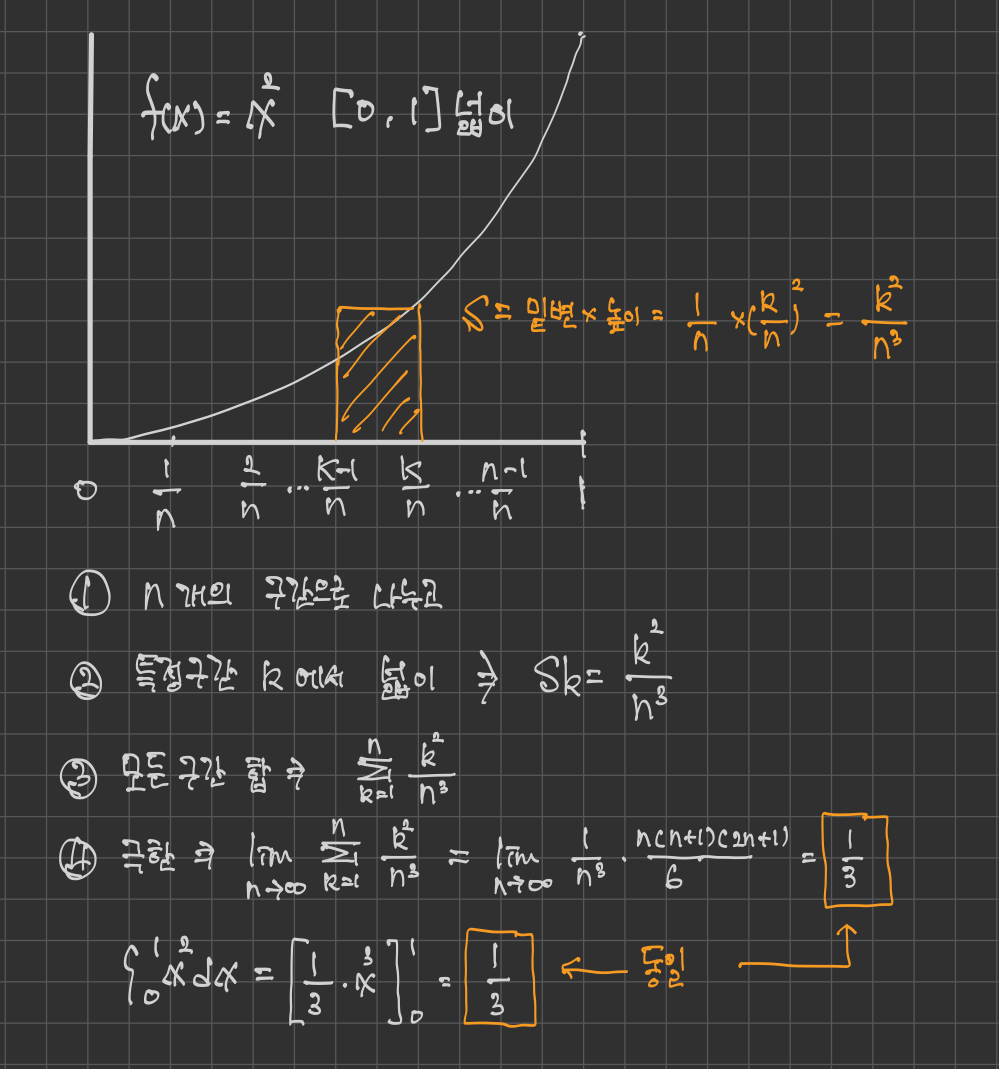 f(x) = x² [0, 1] 넓이
S = 밑변 × 높이 = 1/n × (k/n)² = k²/n³
0 1/n 2/n ... k-1/n k/n ... n-1/n 1
① n개의 구간으로 나누고
② 특정구간 k에서 넓이 ⇒ Sk = k²/n³
③ 모든 구간 합 ⇒ ∑_{k=1}^{n} k²/n³
④ 극한 ⇒ lim_{n→∞} ∑_{k=1}^{n} k²/n³ = lim_{n→∞} 1/n³ · n(n+1)(2n+1)/6 = 1/3
∫₀¹ x² dx = [1/3 · x³]₀¹ = 1/3 ← 동일 →